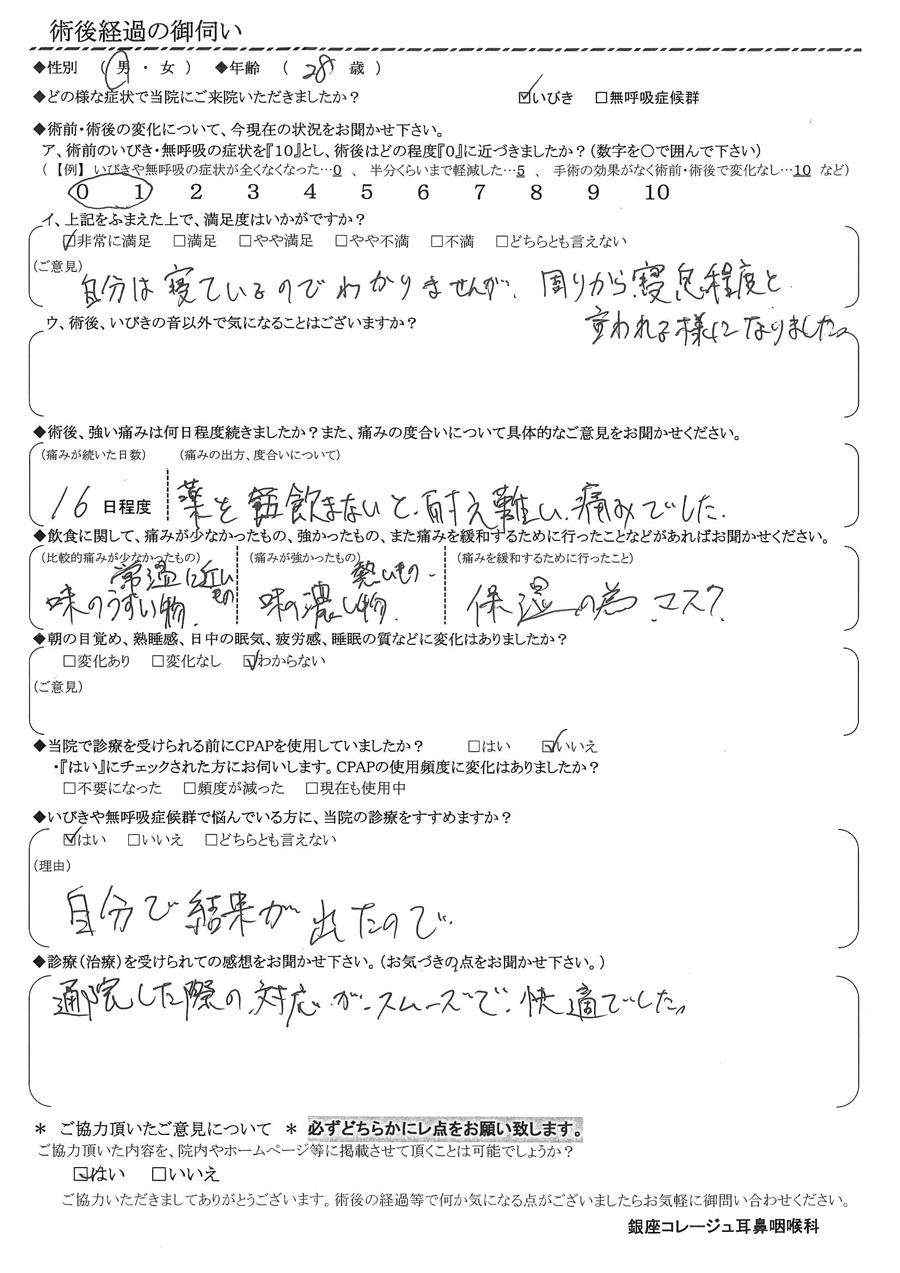 術後経過の御伺い
◆性別 （ 男 ・ 女 ） ◆年齢 （ 28 歳 ）
◆どの様な症状で当院にご来院いただきましたか？ ☑いびき □無呼吸症候群
◆術前・術後の変化について、今現在の状況をお聞かせ下さい。
ア、術前のいびき・無呼吸の症状を『10』とし、術後はどの程度『0』に近づきましたか？（数字を○で囲んで下さい）
（【例】 いびきや無呼吸の症状が全くなくなった…0 、 半分くらいまで軽減した…5 、 手術の効果がなく術前・術後で変化なし…10 など）
0 1 2 3 4 5 6 7 8 9 10
イ、上記をふまえた上で、満足度はいかがですか？
☑非常に満足 □満足 □やや満足 □やや不満 □不満 □どちらとも言えない
（ご意見）
自分は寝ているのでわかりませんが、周りから寝息程度と
言われる様になりました。
ウ、術後、いびきの音以外で気になることはございますか？
◆術後、強い痛みは何日程度続きましたか？また、痛みの度合いについて具体的なご意見をお聞かせください。
（痛みが続いた日数） （痛みの出方、度合いについて）
16 日程度 薬を 飲まないと、耐え難い、痛みでした。
◆飲食に関して、痛みが少なかったもの、強かったもの、また痛みを緩和するために行ったことなどがあればお聞かせください。
（比較的痛みが少なかったもの） （痛みが強かったもの） （痛みを緩和するために行ったこと）
常温に近いもの 熱いもの
味のうすい物 味の濃い物 保湿の為 マスク
◆朝の目覚め、熟睡感、日中の眠気、疲労感、睡眠の質などに変化はありましたか？
□変化あり □変化なし ☑わからない
（ご意見）
◆当院で診療を受けられる前にCPAPを使用していましたか？ □はい ☑いいえ
・『はい』にチェックされた方にお伺いします。CPAPの使用頻度に変化はありましたか？
□不要になった □頻度が減った □現在も使用中
◆いびきや無呼吸症候群で悩んでいる方に、当院の診療をすすめますか？
☑はい □いいえ □どちらとも言えない
（理由）
自分で結果が出たので。
◆診療（治療）を受けられての感想をお聞かせ下さい。（お気づきの点をお聞かせ下さい。）
通院した際の対応がスムーズで、快適でした。
＊ ご協力頂いたご意見について ＊ 必ずどちらかにレ点をお願い致します。
ご協力頂いた内容を、院内やホームページ等に掲載させて頂くことは可能でしょうか？
☑はい □いいえ
ご協力いただきましてありがとうございます。術後の経過等で何か気になる点がございましたらお気軽に御問い合わせください。
銀座コレージュ耳鼻咽喉科